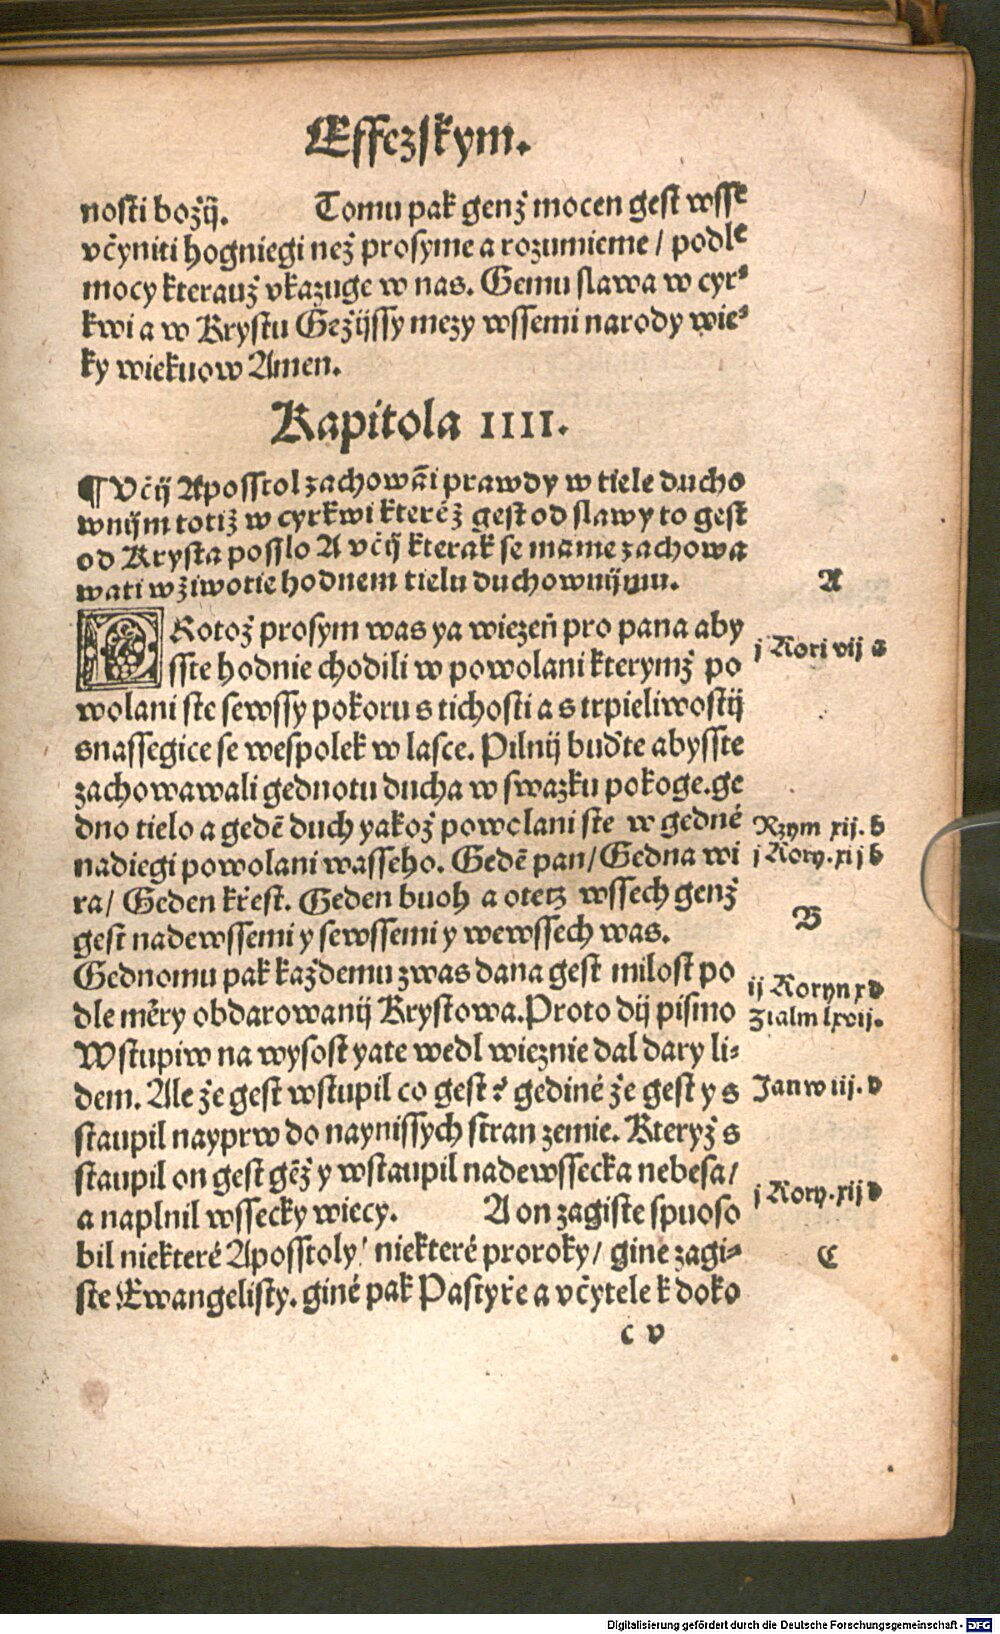 Effezskym.
nosti božij. Tomu pak genž mocen gest wsse
včyniti hogniegi než prosyme a rozumieme / podle
mocy kterauž vkazuge w nas. Gemu slawa w cyr⸗
kwi a w Krystu Gežijssy mezy wssemi narody wie⸗
ky wiekuow Amen.
Kapitola IIII.
¶ Včij Aposstol zachowāi prawdy w tiele ducho
wnijm totiž w cyrkwi kteréž gest od slawy to gest
od Krysta posslo A včij kterak se mame zachowa
wati w žiwotie hodnem tielu duchownijmu.
A
PRotož prosym was ya wiezeň pro pana aby
j Kori vij a
sste hodnie chodili w powolani kterymž po
wolani ste sewssy pokoru s tichosti a s trpieliwostij
snassegice se wespolek w lasce. Pilnij buďte abysste
zachowawali gednotu ducha w swazku pokoge. ge
dno tielo a gedē duch yakož powolani ste w gedné
Rzym xij. b
nadiegi powolani wasseho. Gedē pan / Gedna wi
j Kory. xij b
ra / Geden křest. Geden buoh a otetz wssech genž
B
gest nadewssemi y sewssemi y wewssech was.
Gednomu pak každemu zwas dana gest milost po
ij Koryn x d
dle měry obdarowanij Krystowa. Proto dij pismo
Zialm lxvij.
Wstupiw na wysost yate wedl wieznie dal dary li⸗
dem. Ale že gest wstupil co gest? gediné že gest y s
Jan w iij. d
staupil nayprw do naynissych stran zemie. Kteryž s
staupil on gest gēž y wstaupil nadewssecka nebesa /
j Kory. xij d
a naplnil wssecky wiecy. A on zagiste spuoso
bil niekteré Aposstoly / niekteré proroky / gine zagi⸗
C
ste Ewangelisty. giné pak Pastyře a včytele k doko
c v
Digitalisierung gefördert durch die Deutsche Forschungsgemeinschaft - DFG